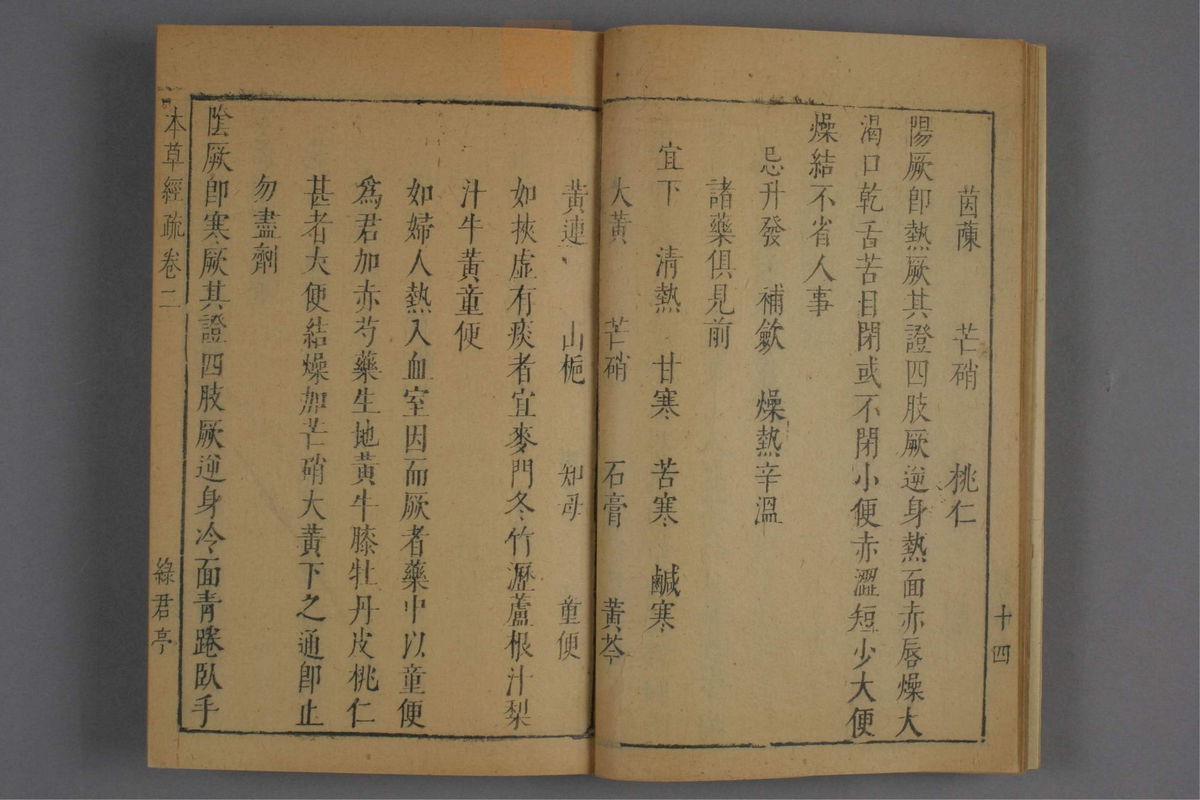 茵蔯 芒硝 桃仁
陽厥卽熱厥其證四肢厥逆身熱面赤唇燥大
渴口乾舌苦目閉或不閉小便赤澀短少大便
燥結不省人事
忌升發 補斂 燥熱辛溫
諸藥俱見前
宜下 清熱 甘寒 苦寒 鹹寒
大黃 芒硝 石膏 黃芩
黃連 山梔 知母 童便
如挾虛有痰者宜麥門冬竹瀝蘆根汁梨
汁牛黃童便
如婦人熱入血室因而厥者藥中以童便
爲君加赤芍藥生地黃牛膝牡丹皮桃仁
甚者大便結燥加芒硝大黃下之通卽止
勿盡劑
陰厥卽寒厥其證四肢厥逆身冷面青踡臥手
十四
本草經疏卷二
綠君亭